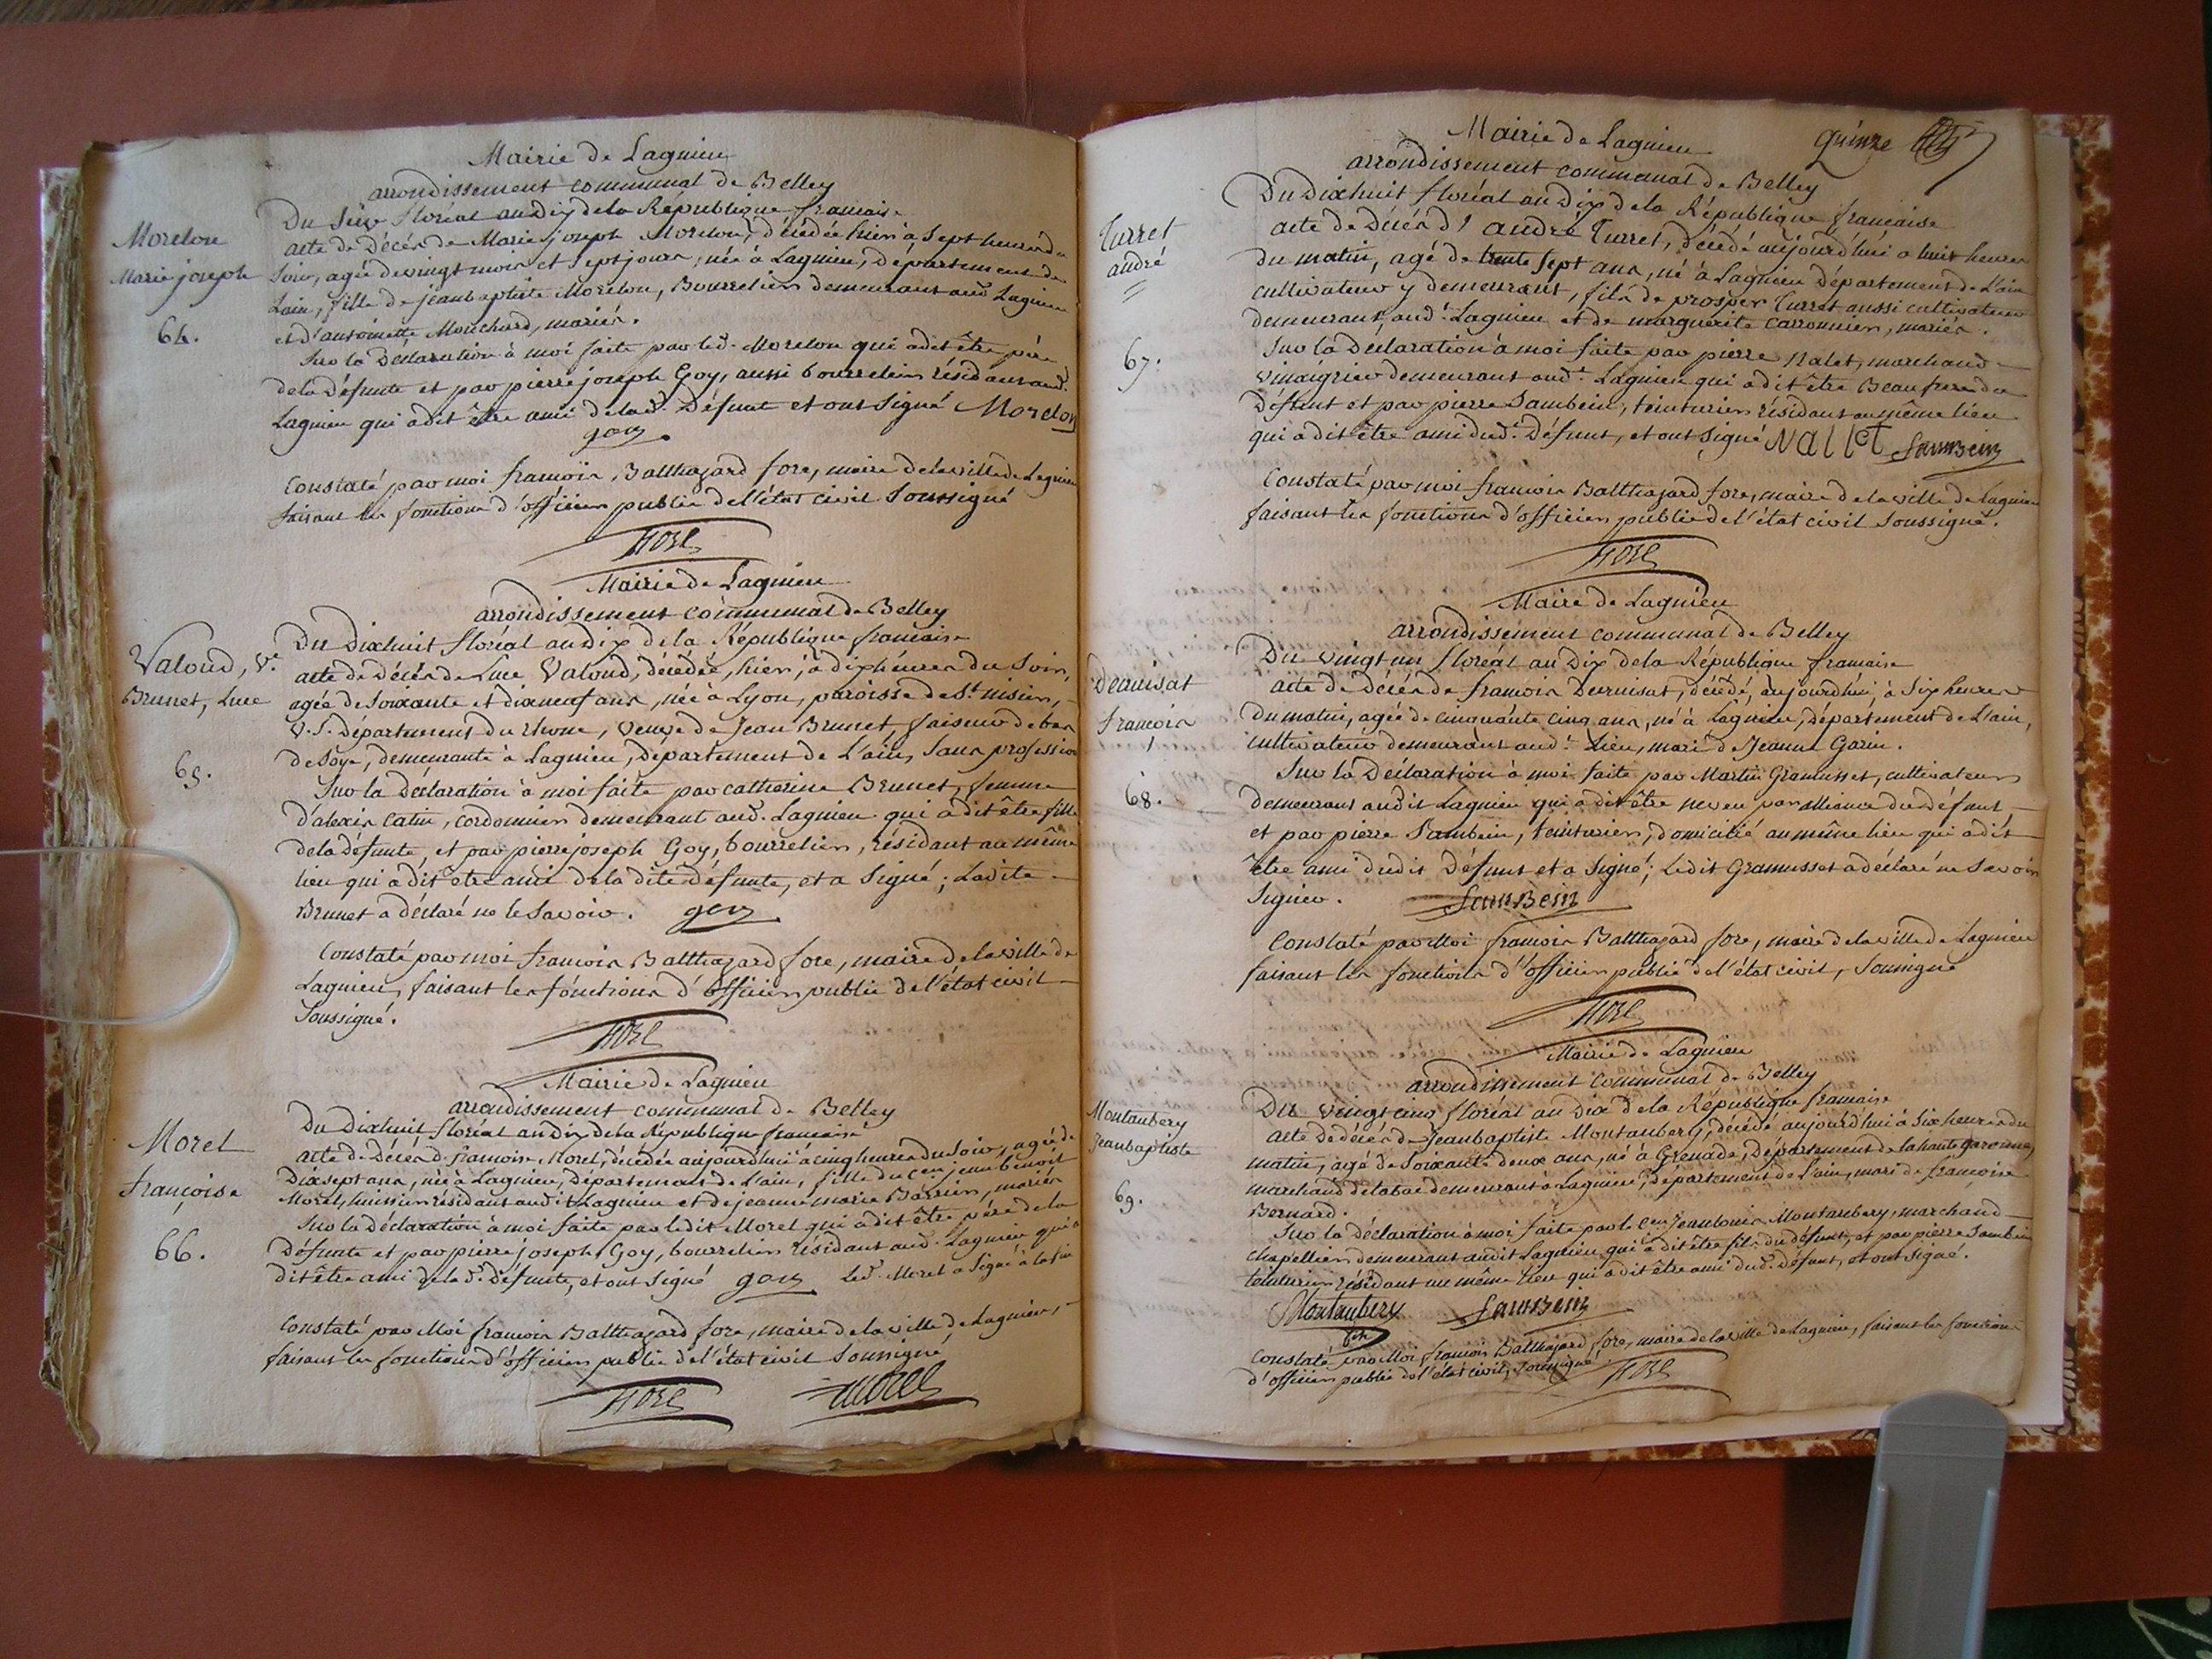 Mairie de Lagnieu
arrondissement communal de Belley
Du Seize floréal an dix de la République francaise
Morelon
Marie joseph
64.
acte de Décès de Marie joseph Morelon, décédée hier à Sept heures du
Soir, agée de vingt mois et Sept jours, née à Lagnieu, Département de
Lain, fille de jeanbaptiste Morelon, Bourrelier demeurant aud. Lagnieu
et d'antoinette Mouchard, mariés.
Sur la Declaration à moi faite par led. Morelon qui a dit être père
de la défunte et par pierre joseph Goy, aussi bourrelier résidant aud.
Lagnieu qui a dit être ami de lad. Défunte et ont Signé Morelon
goy
Constaté par moi francois Balthazard fore, maire de la ville de Lagnieu
faisant les fonctions d'officier public de l'état civil Soussigné
fore
Mairie de Lagnieu
arrondissement communal de Belley
Du Dixhuit floréal an Dix de la République francaise
Valoud, Ve.
Brunet, Luce
65.
acte de Décès de Luce Valoud, décédée, hier, à dix heures du Soir,
agée de Soixante et dixneuf ans, née à Lyon, paroisse de St. nisier,
V.S. Département du Rhone, veuve de Jean Brunet, faiseur de bas
de Soye, demeurante à Lagnieu, Département de L'ain, Sans profession
Sur la déclaration à moi faite par catherine Brunet, femme
d'alexis catin, cordonnier demeurant aud. Lagnieu qui a dit être fille
de la défunte, et par pierre joseph Goy, bourrelier, résidant au même
lieu qui a dit être ami de la dite défunte, et a Signé; Ladite
Brunet a déclaré ne le Savoir. goy
Constaté par moi francois Balthazard fore, maire de la ville de
Lagnieu, faisant les fonctions d'officier public de l'état civil
Soussigné.
fore
Mairie de Lagnieu
arrondissement communal de Belley
Du Dixhuit floréal an Dix de la République francaise
Morel
françoise
66.
acte de Décès de francoise Morel, décédée aujourdhui à cinq heures du Soir, agée de
Dixsept ans, née à Lagnieu, Département de L'ain, fille du cen. jean benoit
Morel, huissier résidant audit Lagnieu et de jeanne marie Barrier, mariés
Sur la déclaration à moi faite par ledit Morel qui a dit être père de la
Défunte et par pierre joseph Goy, bourrelier résidant aud. Lagnieu qui a
dit être ami de la d. défunte, et ont Signé goy Led. Morel a Signé à la fin
Constaté par Moi francois Balthazard fore, maire de la ville de Lagnieu,
faisant les fonctions d'officier public de l'état civil Soussigné
fore Morel
quinze
Mairie de Lagnieu
arrondissement communal de Belley
Du Dixhuit floréal an Dix de la République francaise
Turret
andré
67.
acte de Décès d'andré Turret, décédé aujourd'hui a huit heures
du matin, agé de trente Sept ans, né à Lagnieu Département de L'ain
cultivateur y demeurant, fils de prosper Turret aussi cultivateur
demeurant aud. Lagnieu et de marguerite carronnier, mariés.
Sur la Déclaration à moi faite par pierre Nalet, marchand
vinaigrier demeurant audt. Lagnieu qui a dit être Beaufrere du
Défunt et par pierre Sambein, teinturier résidant au même lieu
qui a dit être ami dud. Défunt, et ont Signé Nallet Sambein
Constaté par moi francois Balthazard fore, maire de la ville de Lagnieu
faisant les fonctions d'officier public de l'état civil Soussigné.
fore
Maire de Lagnieu
arrondissement communal de Belley
Du vingt un floréal an Dix de la République francaise
francois
68.
acte de Décès de francois Deunisat, décédé, aujourdhui à Six heures
du matin, agée de cinquante cinq ans, né à Lagnieu, département de L'ain,
cultivateur demeurant audt. Lieu, mari de Jeanne Garin.
Sur la Déclaration à moi faite par Martin Gramusset, cultivateur
demeurant audit Lagnieu qui a dit être neveu par alliance du défunt
et par pierre Sambein, teinturier, domicilié au même lieu qui a dit
être ami dudit Défunt et a Signé; Ledit Gramusset a déclaré ne Savoir
Signer. Sambein
Constaté par Moi francois Balthazard fore, maire de la ville de Lagnieu
faisant les fonctions d'officier public de l'état civil, Soussigné
fore
Mairie de Lagnieu
arrondissement communal de Belley
Du vingt cinq floréal an Dix de la République francaise
Montaubery
Jeanbaptiste
69.
acte de décès de Jeanbaptiste Montaubery, décédé aujourdhui à Six heures du
matin, agé de Soixante deux ans, né à Grenade, Département de la haute garonne,
marchand de tabac demeurant à Lagnieu, département de L'ain, mari de françoise
Bernard.
Sur la déclaration à moi faite par le Cen. Jean louis Montaubery, marchand
chapellier demeurant audit Lagnieu, qui a dit être fils du défunt, et par pierre Sambein
teinturier résidant au même lieu qui a dit être ami dud. défunt, et ont Signé.
Montaubery fils Sambein
Constaté par Moi francois Balthazard fore, maire de la ville de Lagnieu, faisant les fonctions
d'officier public de l'état civil, Soussigné
fore